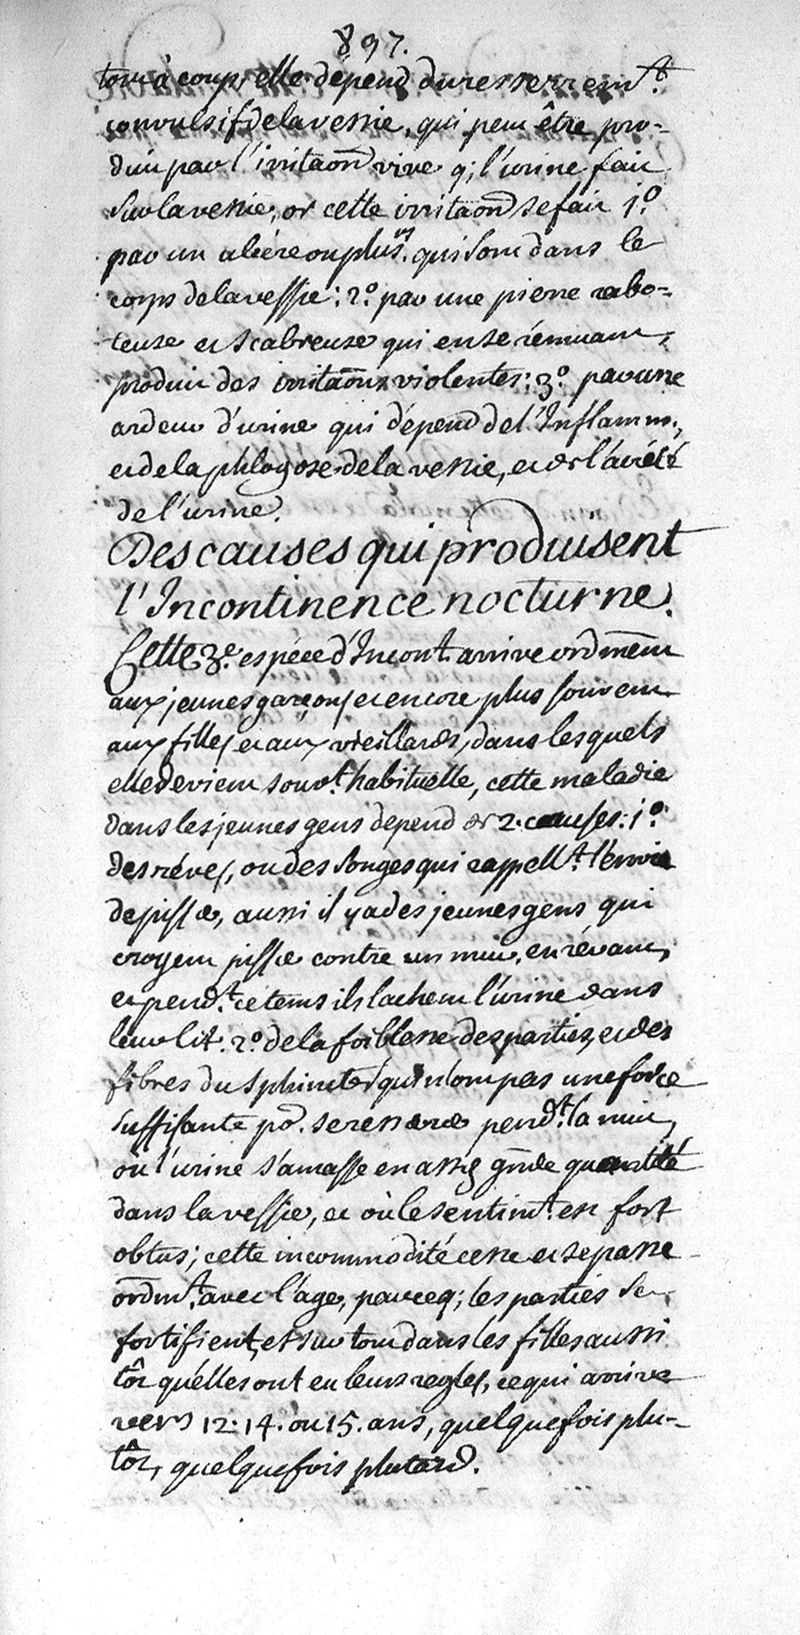 897.
tout à coup, elle dépend du resserrem.t
convulsif de la vessie, qui peut être pro=
duit par l'irritaõn vive q; l'urine fait
sur la vessie, or cette irritaõn se fait 1.o
par un ulcère ou plus.rs qui sont dans le
corps de la vessie: 2.o par une pierre rabo=
teuse et scabreuse qui en se remuant,
produit des irritaõns violentes: 3.o par une
ardeur d'urine qui dépend de l'Inflamm.,
et de la phlogose de la vessie, et de l'âcreté
de l'urine.
Des causes qui produisent
l'Incontinence nocturne.
Cette 3.e espèce d'Incont. arrive ordinem̃ent
aux jeunes garçons et encore plus souvent
aux filles et aux vieillards, dans lesquels
elle devient souv.t habituelle, cette maladie
dans les jeunes gens depend de 2. causes: 1.o
des réves, ou des songes qui rappell.t l'envie
de pisser, aussi il y a des jeunes gens qui
croyent pisser contre un mur, en révant,
et pend.t ce tems ils lachent l'urine dans
leur lit. 2.o de la foiblesse des parties, et des
fibres du sphincter qui n'ont pas une force
suffisante po.r se resserrer pend.t la nuit,
où l'urine s'amasse en assés grnde quantité
dans la vessie, et où le sentim.t est fort
obtus; cette incommodité cesse et se passe
ordin.t avec l'âge, parceq; les parties se
fortifient, et sur tout dans les filles aussi
tôt qu'elles ont eu leurs regles, ce qui arrive
vers 12. 14. ou 15. ans, quelquefois plu-
tôt, quelquefois plutard.